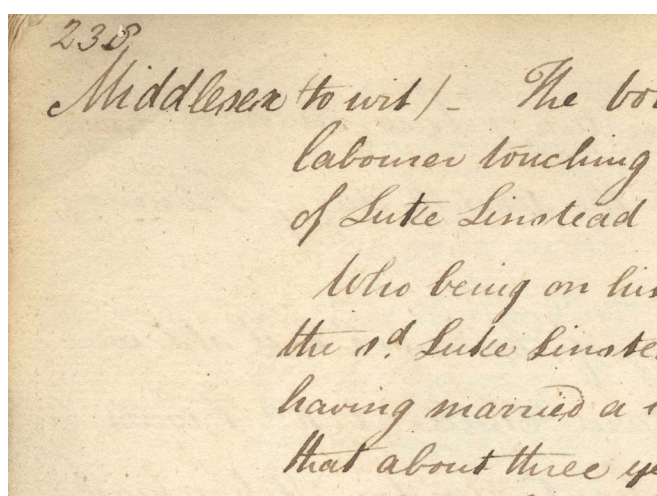 238
Middlesex to wit /- The
labourer touching
of Luke Linstead
Who being on his
the sd. Luke
having married a
that about three